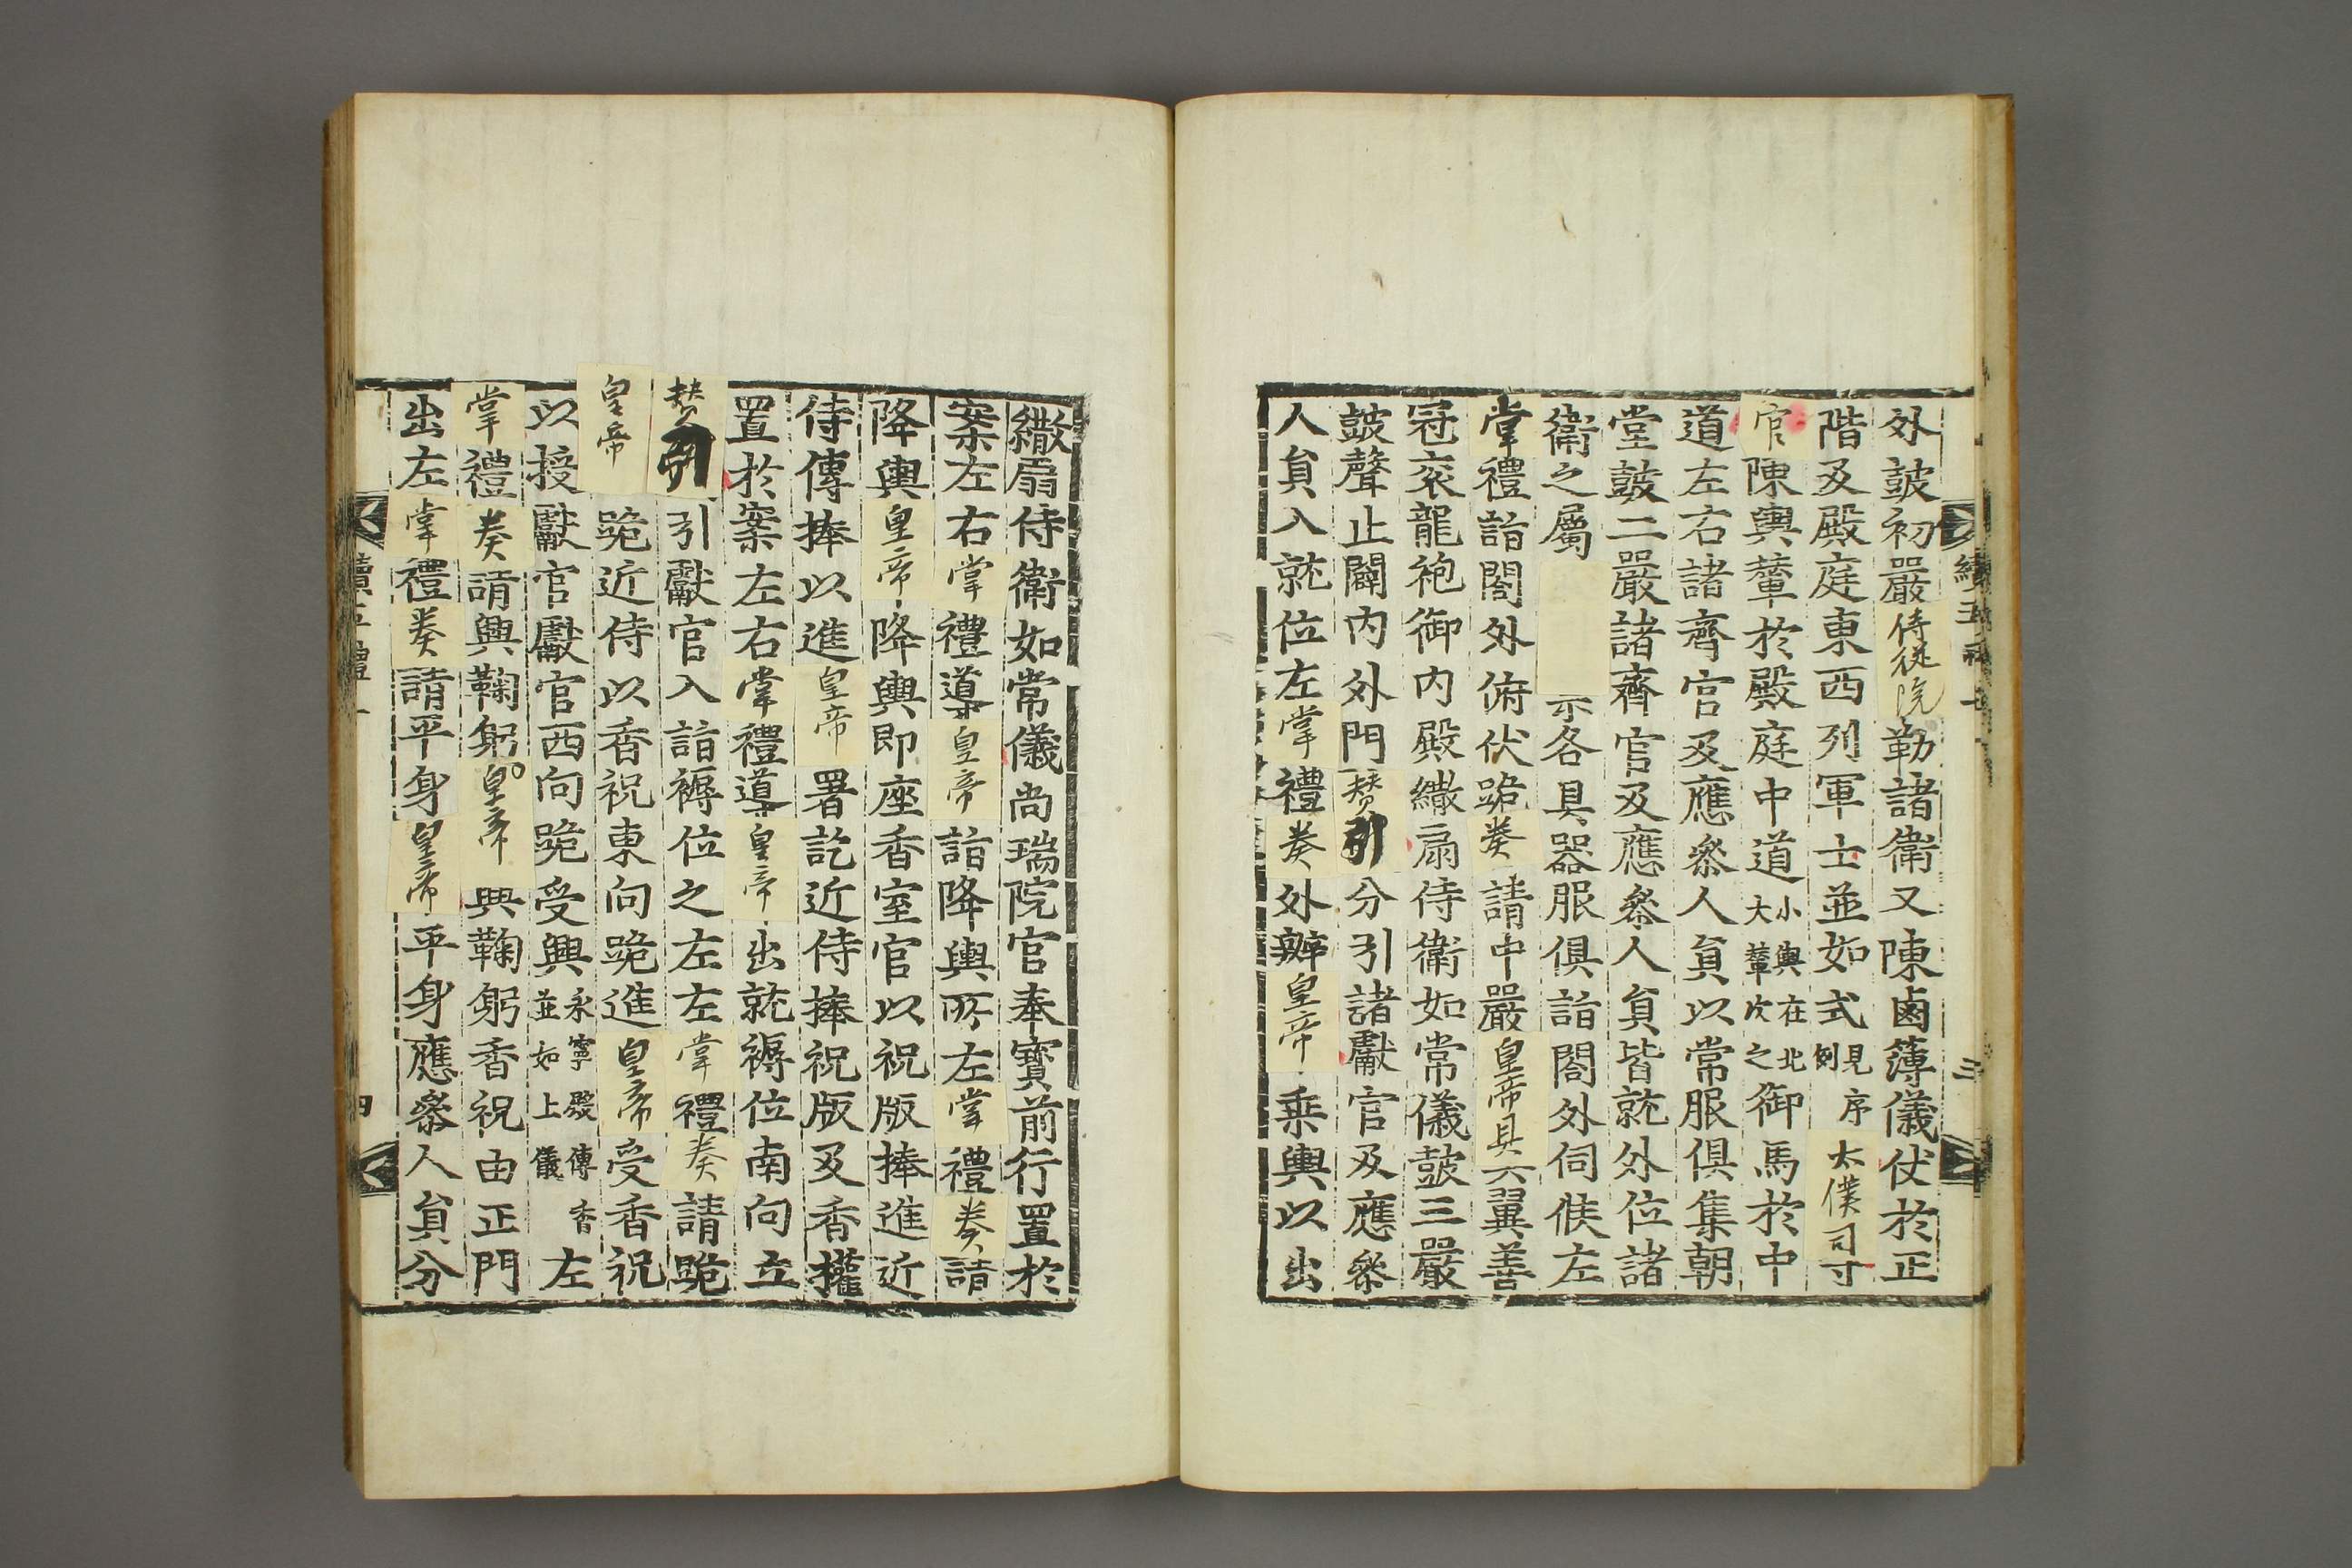 外皷初嚴侍從院勒諸衞又陳鹵簿儀仗於正
階及殿庭東西列軍士並如式見序例太僕司寸
官陳輿輦於殿庭中道小輿在北大輦次之御馬於中
道左右諸齊官及應叅人負以常服俱集朝
堂皷二嚴諸齊官及應叅人負皆就外位諸
衞之屬各具器服俱詣閤外伺候左
掌禮詣閤外俯伏跪奏請中嚴皇帝具六翼善
冠衮龍袍御内殿繖扇侍衞如常儀皷三嚴
皷聲止闢内外門賛引分引諸獻官及應叅
人負入就位左掌禮奏外辦皇帝乗輿以出
續五禮一
三
繖扇侍衞如常儀尚瑞院官奉寳前行置於
案左右掌禮導皇帝詣降輿所左掌禮奏請
降輿皇帝降輿即座香室官以祝版捧進近
侍傳捧以進皇帝署訖近侍捧祝版及香權
置於案左右掌禮導皇帝出就褥位南向立
賛引引獻官入詣褥位之左左掌禮奏請跪
皇帝跪近侍以香祝東向跪進皇帝受香祝
以授獻官獻官西向跪受興永寧殿傳香並如上儀左
掌禮奏請興鞠躬皇帝興鞠躬香祝由正門
出左掌禮奏請平身皇帝平身應叅人負分
續五禮一
四